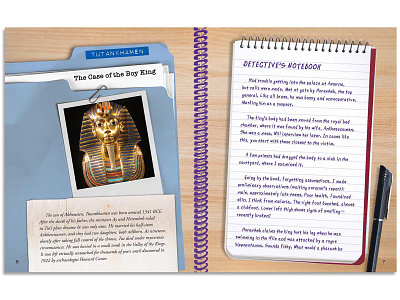 TUTANKHAMEN
The Case of the Boy King
The son of Akhenaten, Tutankhamun was born around 1341 BCE.
After the death of his father, the ministers Ay and Horemheb ruled
in Tut's place because he was only nine. He married his half-sister
Ankhesenamun, and they had two daughters, both stillborn. At nineteen,
shortly after taking full control of the throne, Tut died under mysterious
circumstances. He was buried in a small tomb in the Valley of the Kings.
It was left virtually untouched for thousands of years until discovered in
1922 by archaeologist Howard Carter.
6
DETECTIVE'S NOTEBOOK
Had trouble getting into the palace at Amarna,
but calls were made. Met at gate by Horemheb, the top
general. Like all brass, he was bossy and uncooperative.
Marking him as a suspect.
The king's body had been moved from the royal bed
chamber, where it was found by his wife, Ankhesenamun.
She was a mess. Will interview her later. In cases like
this, you start with those closest to the victim.
A few priests had dragged the body to a slab in the
courtyard, where I examined it.
Going by the book, forgetting assumptions, I made
preliminary observations (waiting coroner's report):
male, approximately late teens. Poor health, jaundiced
skin. I think from malaria. The right foot knotted, almost
a clubfoot. Lower left thigh shows signs of swelling—
recently broken?
Horemheb claims the king hurt his leg when he was
swimming in the Nile and was attacked by a rogue
hippopotamus. Sounds fishy. What would a pharaoh be
7